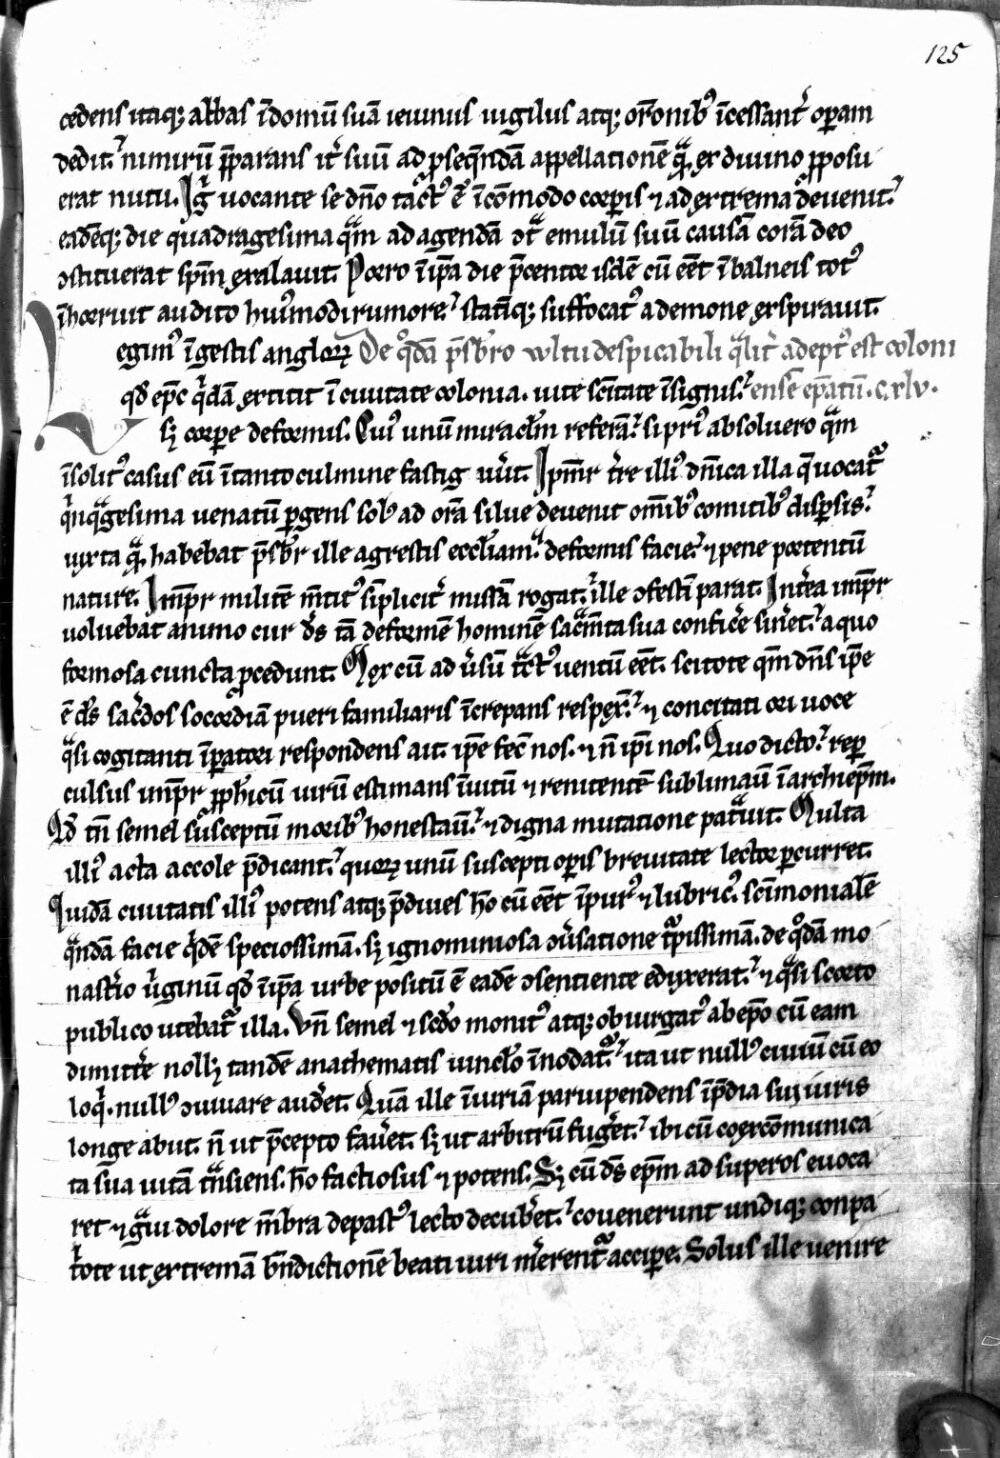 125
cedens itaq; abbas ĩ domũ suã ieiuniis uigiliis atq; or̃onib⁹ ĩcessant̉ op̱am
dedit. nimirũ p̃parans it̉ suũ ad ꝓseq̃ndã appellationẽ qͣ̃, ex diuino ꝓposu
erat nutu. Ig̉ uocante se dño tact⁹ ẽ ĩcõmodo corp̱is ⁊ ad extrema deuenit.
eadẽq; die quadragesima qͣm̃ ad agendã ↄtͣ emulũ suũ causã corã deo
ↄstituerat sp̃m exalauit. Porro ĩ ip̃a die p̃centor isdẽ cũ eẽt ĩ balneis tot⁹
ĩhorruit audito hui⁹modi rumore. statĩq; suffocat⁹ a demone expirauit.
egim⁹ ĩ gestis angloꝝ De qͦdã p̃sbr̃o uultu despicabili qͣlit̉ adept⁹ est coloni
qđ ep̃c qͥdã extitit ĩ ciuitate colonia. uite sc̃itate ĩsignis. ensẽ ep̃atũ. c.xlv.
sꝫ corp̱e deformis. Cui⁹ unũ miracl̃m referã. si pri⁹ absoluero qͣm̃
ĩsolit⁹ casus eũ ĩ tanto culmine fastig uı̉it. Ipm̃r t̉re illi⁹ dñica illa q̃ uocat̉
qͥnqͣgesima uenatũ p̱gens sol⁹ ad orã silue deuenit om̃ib⁹ comitib⁹ disp̱sis.
iuxta qͣ̃, habebat p̃sbr̃ ille agrestis eccl̃iam. deformis facie. ⁊ pene portentũ
nature. Im̃pr militẽ m̃tit⁹ sĩplicit̉ missã rogat. ille ↄfestĩ parat. Int̉ea im̃pr
uoluebat animo cur d̃s tã deformẽ hominẽ sacm̃ta sua confic̉e sin̉et. a quo
formosa cuncta ꝓcedunt. Mox cũ ad ủsũ tͣct⁹ uentũ eẽt. scitote qm̃ dñs ip̃e
ẽ d̃s sac̉dos socordiã pueri familiaris ĩcrepans respex̉. ⁊ concitatiori uoce
qͣsi cogitanti ĩp̱atori respondens ait. ip̃e fec̃ nos. ⁊ ñ ip̃i nos. Quo dicto. rep̱
culsus im̃pr ꝓph̃icũ uirũ estimans ĩuitũ ⁊ renitentẽ sublimauı̃ ĩ archiep̃m.
Qđ tñ semel susceptũ morib⁹ honestauı̃. ⁊ digna mutatione patͣuit. Multa
illi⁹ acta accole p̃dicant. quoꝝ unũ suscepti op̱is breuitate lector p̱curret.
Quidã ciuitatis illi⁹ potens atq; p̃diues hõ cũ eẽt ĩpur⁹ ⁊ lubric⁹. sc̃imonialẽ
qͣndã facie qͥdẽ speciosissimã. sꝫ ignominiosa ↄủsatione tͥpissimã. de qͦdã mo
nast̉io ủginũ qđ ĩ ip̃a urbe positũ ẽ eadẽ ↄsentiente eduxerat. ⁊ qͣsi scorto
publico utebat̉ illa. Vñ semel ⁊ scđo monit⁹ atq; obiurgat⁹ ab ep̃o cũ eam
dimitt̉e noll꫎ tandẽ anathematis uincl̃o ĩnodat̉. ita ut null⁹ ciuiũ cũ eo
loqͥ. null⁹ ↄuiuare aud̉et. Quã ille ĩiuriã paruipendens ĩ p̃dia sui iuris
longe abiit. ñ ut p̃cepto faủet. sꝫ ut arbitrũ fug̉et. ibi cũ excõmunica
ta sua uitã tͣnsiens. hõ factiosus ⁊ potens. Sꝫ cũ d̃s ep̃m ad superos euoca
ret ⁊ gͣui dolore m̃bra depast⁹ lecto decub̉et. couenerunt undiq; conpa
t̉ote ut extremã bñdictionẽ beati uiri m̉erent̉ accip̱e. Solus ille uenire